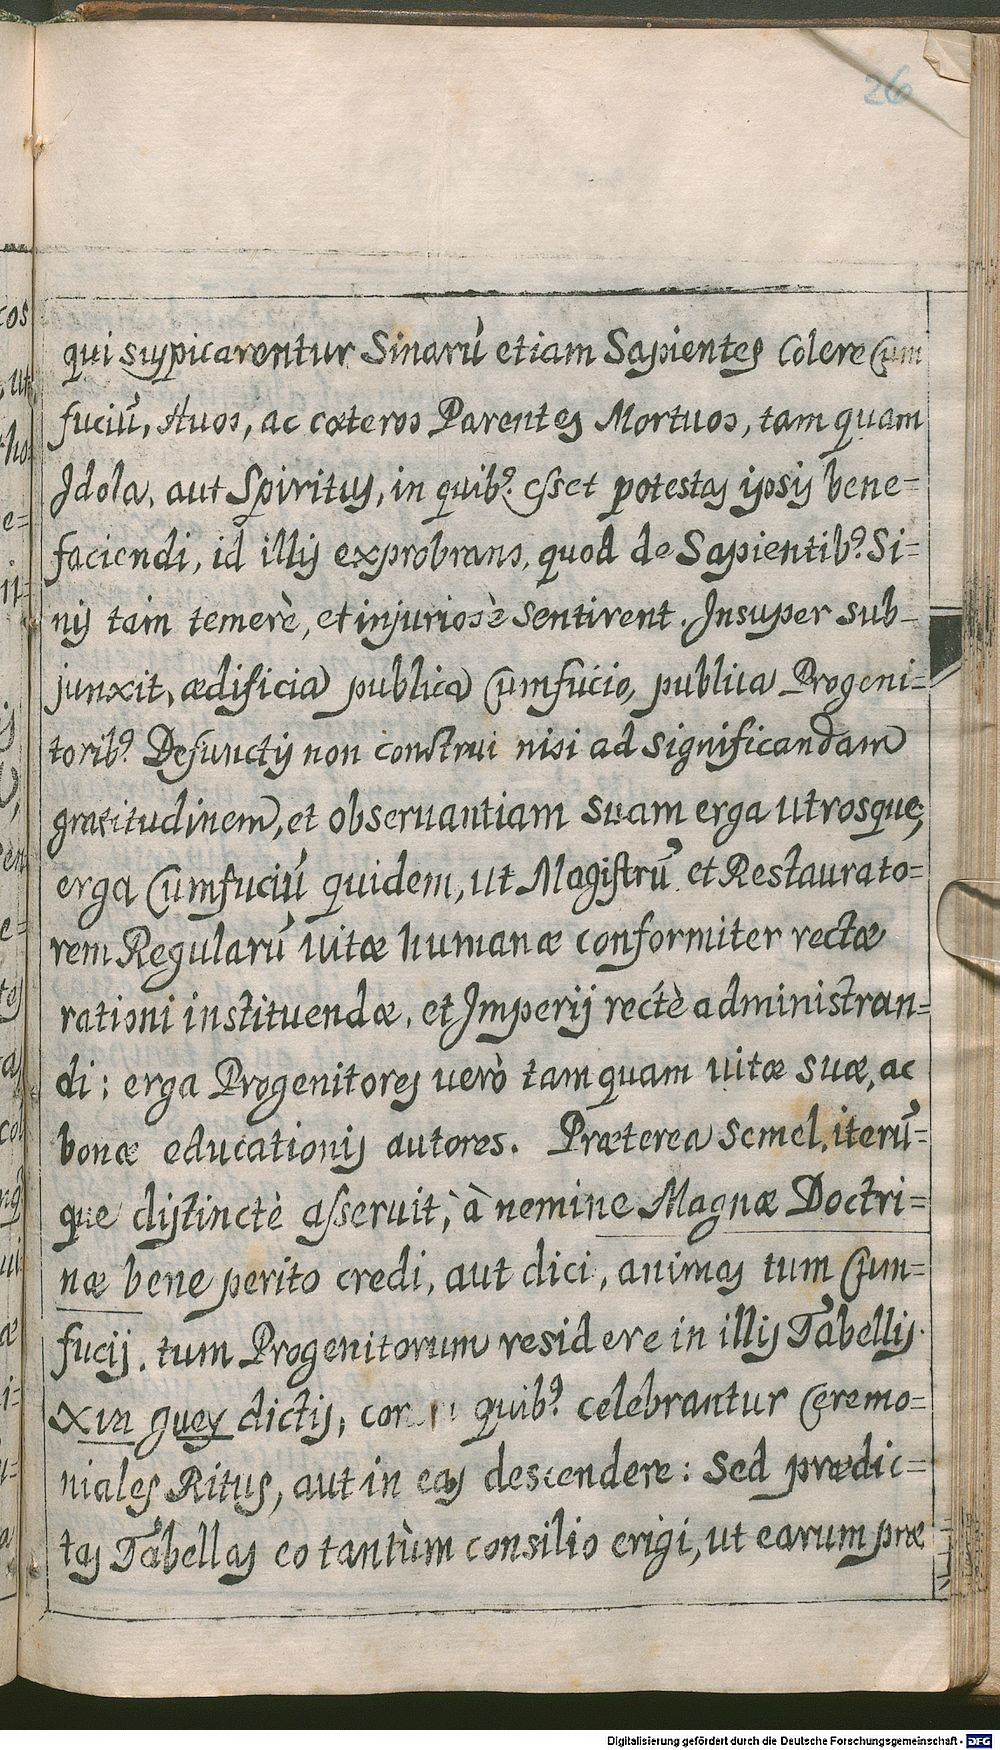 26
qui suspicarentur Sinarũ etiam Sapientes Colere Cum
fuciũ, Auos, ac cæteros Parentes Mortuos, tam quam
Idola, aut Spiritus, in quibꝰ esset potestas ipsis bene=
faciendi, id illis exprobrans, quod de Sapientibꝰ Si=
nis tam temerè, et injuriosè sentirent. Insuper sub-
junxit, ædificia publica Cumfucio, publica Progeni=
toribꝰ Defunctis non construi nisi ad significandam
gratitudinem, et obseruantiam suam erga utrosque,
erga Cumfuciũ quidem, ut Magistrũ et Restaurato=
rem Regularũ uitæ humanæ conformiter rectæ
rationi instituendæ, et Imperij rectè administran=
di: erga Progenitores uerò tam quam uitæ suæ, ac
bonæ educationis autores. Præterea semel, iterũ=
que distinctè asseruit, à nemine Magnæ Doctri=
næ bene perito credi, aut dici, animas tum Cum=
fucij, tum Progenitorum residere in illis Tabellis
Xin guey dictis, quibꝰ celebrantur Ceremo=
niales Ritus, aut in eas descendere: Sed prædic=
tas Tabellas eo tantùm consilio erigi, ut earum præ
Digitalisierung gefördert durch die Deutsche Forschungsgemeinschaft - DFG